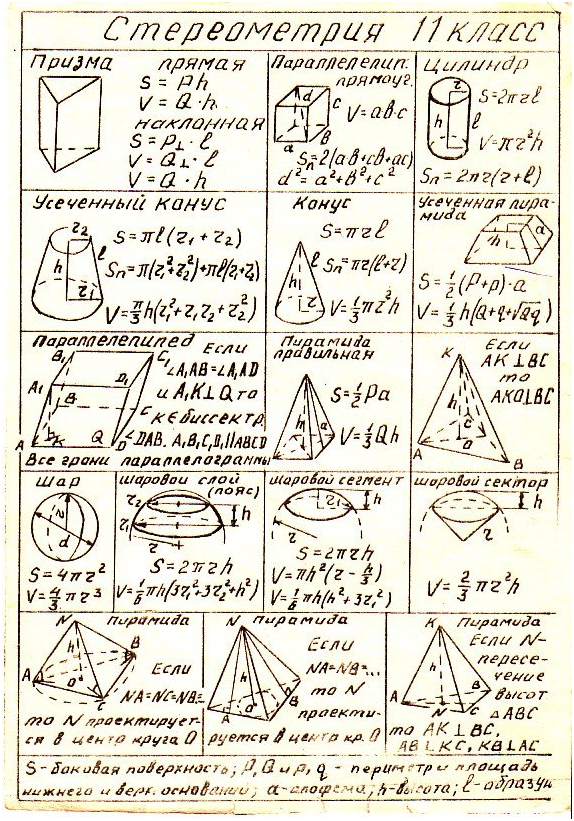 Стереометрия 11 класс
Призма
прямая
S = Ph
V = Q·h
наклонная
S = P⊥·l
V = Q⊥·l
V = Q·h
Параллелепип.
прямоуг.
d
c
a
в
V = aв·c
Sп=2(aв+cв+ac)
d² = a²+в²+c²
Цилиндр
r
h
l
S=2πrl
V=πr²h
Sп=2πr(r+l)
Усеченный конус
r₂
h
l
r₁
S=πl(r₁+r₂)
Sп=π(r₁²+r₂²)+πl(r₁+r₂)
V=π/3 h(r₁²+r₁r₂+r₂²)
Конус
h
l
r
S=πrl
Sп=πr(l+r)
V=1/3 πr²h
Усеченная пира-
мида
h
a
S=1/2(P+p)·a
V=1/3 h(Q+q+√Qq)
Параллелепипед
B₁
C₁
A₁
D₁
B
C
A
K
Q
D
Если
∠A₁AB=∠A₁AD
и A₁K⊥Q то
K∈ биссектр.
∠DAB. A₁B₁C₁D₁∥ABCD
Все грани параллелограммы
Пирамида
правильная
h
a
S=1/2 Pa
V=1/3 Qh
K
A
C
O
B
Если
AK⊥BC
то
AKO⊥BC
Шар
r
d
S=4πr²
V=4/3 πr³
Шаровой слой
(пояс)
r₂
h
r₁
r
S=2πrh
V=1/6 πh(3r₁²+3r₂²+h²)
Шаровой сегмент
r₁
h
r
S=2πrh
V=πh²(r-h/3)
V=1/6 πh(h²+3r₁²)
Шаровой сектор
h
r
V=2/3 πr²h
Пирамида
N
h
B
A
O
C
Если
NA=NC=NB=
то N проектирует-
ся в центр круга O
Пирамида
N
h
A
O
B
Если
NA=NB=...
то N
проекти-
руется в центр кр. O
Пирамида
K
h
A
N
B
C
Если N-
пересе-
чение
высот
△ABC
то AK⊥BC,
AB⊥KC, KB⊥AC
S-боковая поверхность; P, Q и p, q - периметр и площадь
нижнего и верх. оснований; a-апофема; h-высота; l-образую